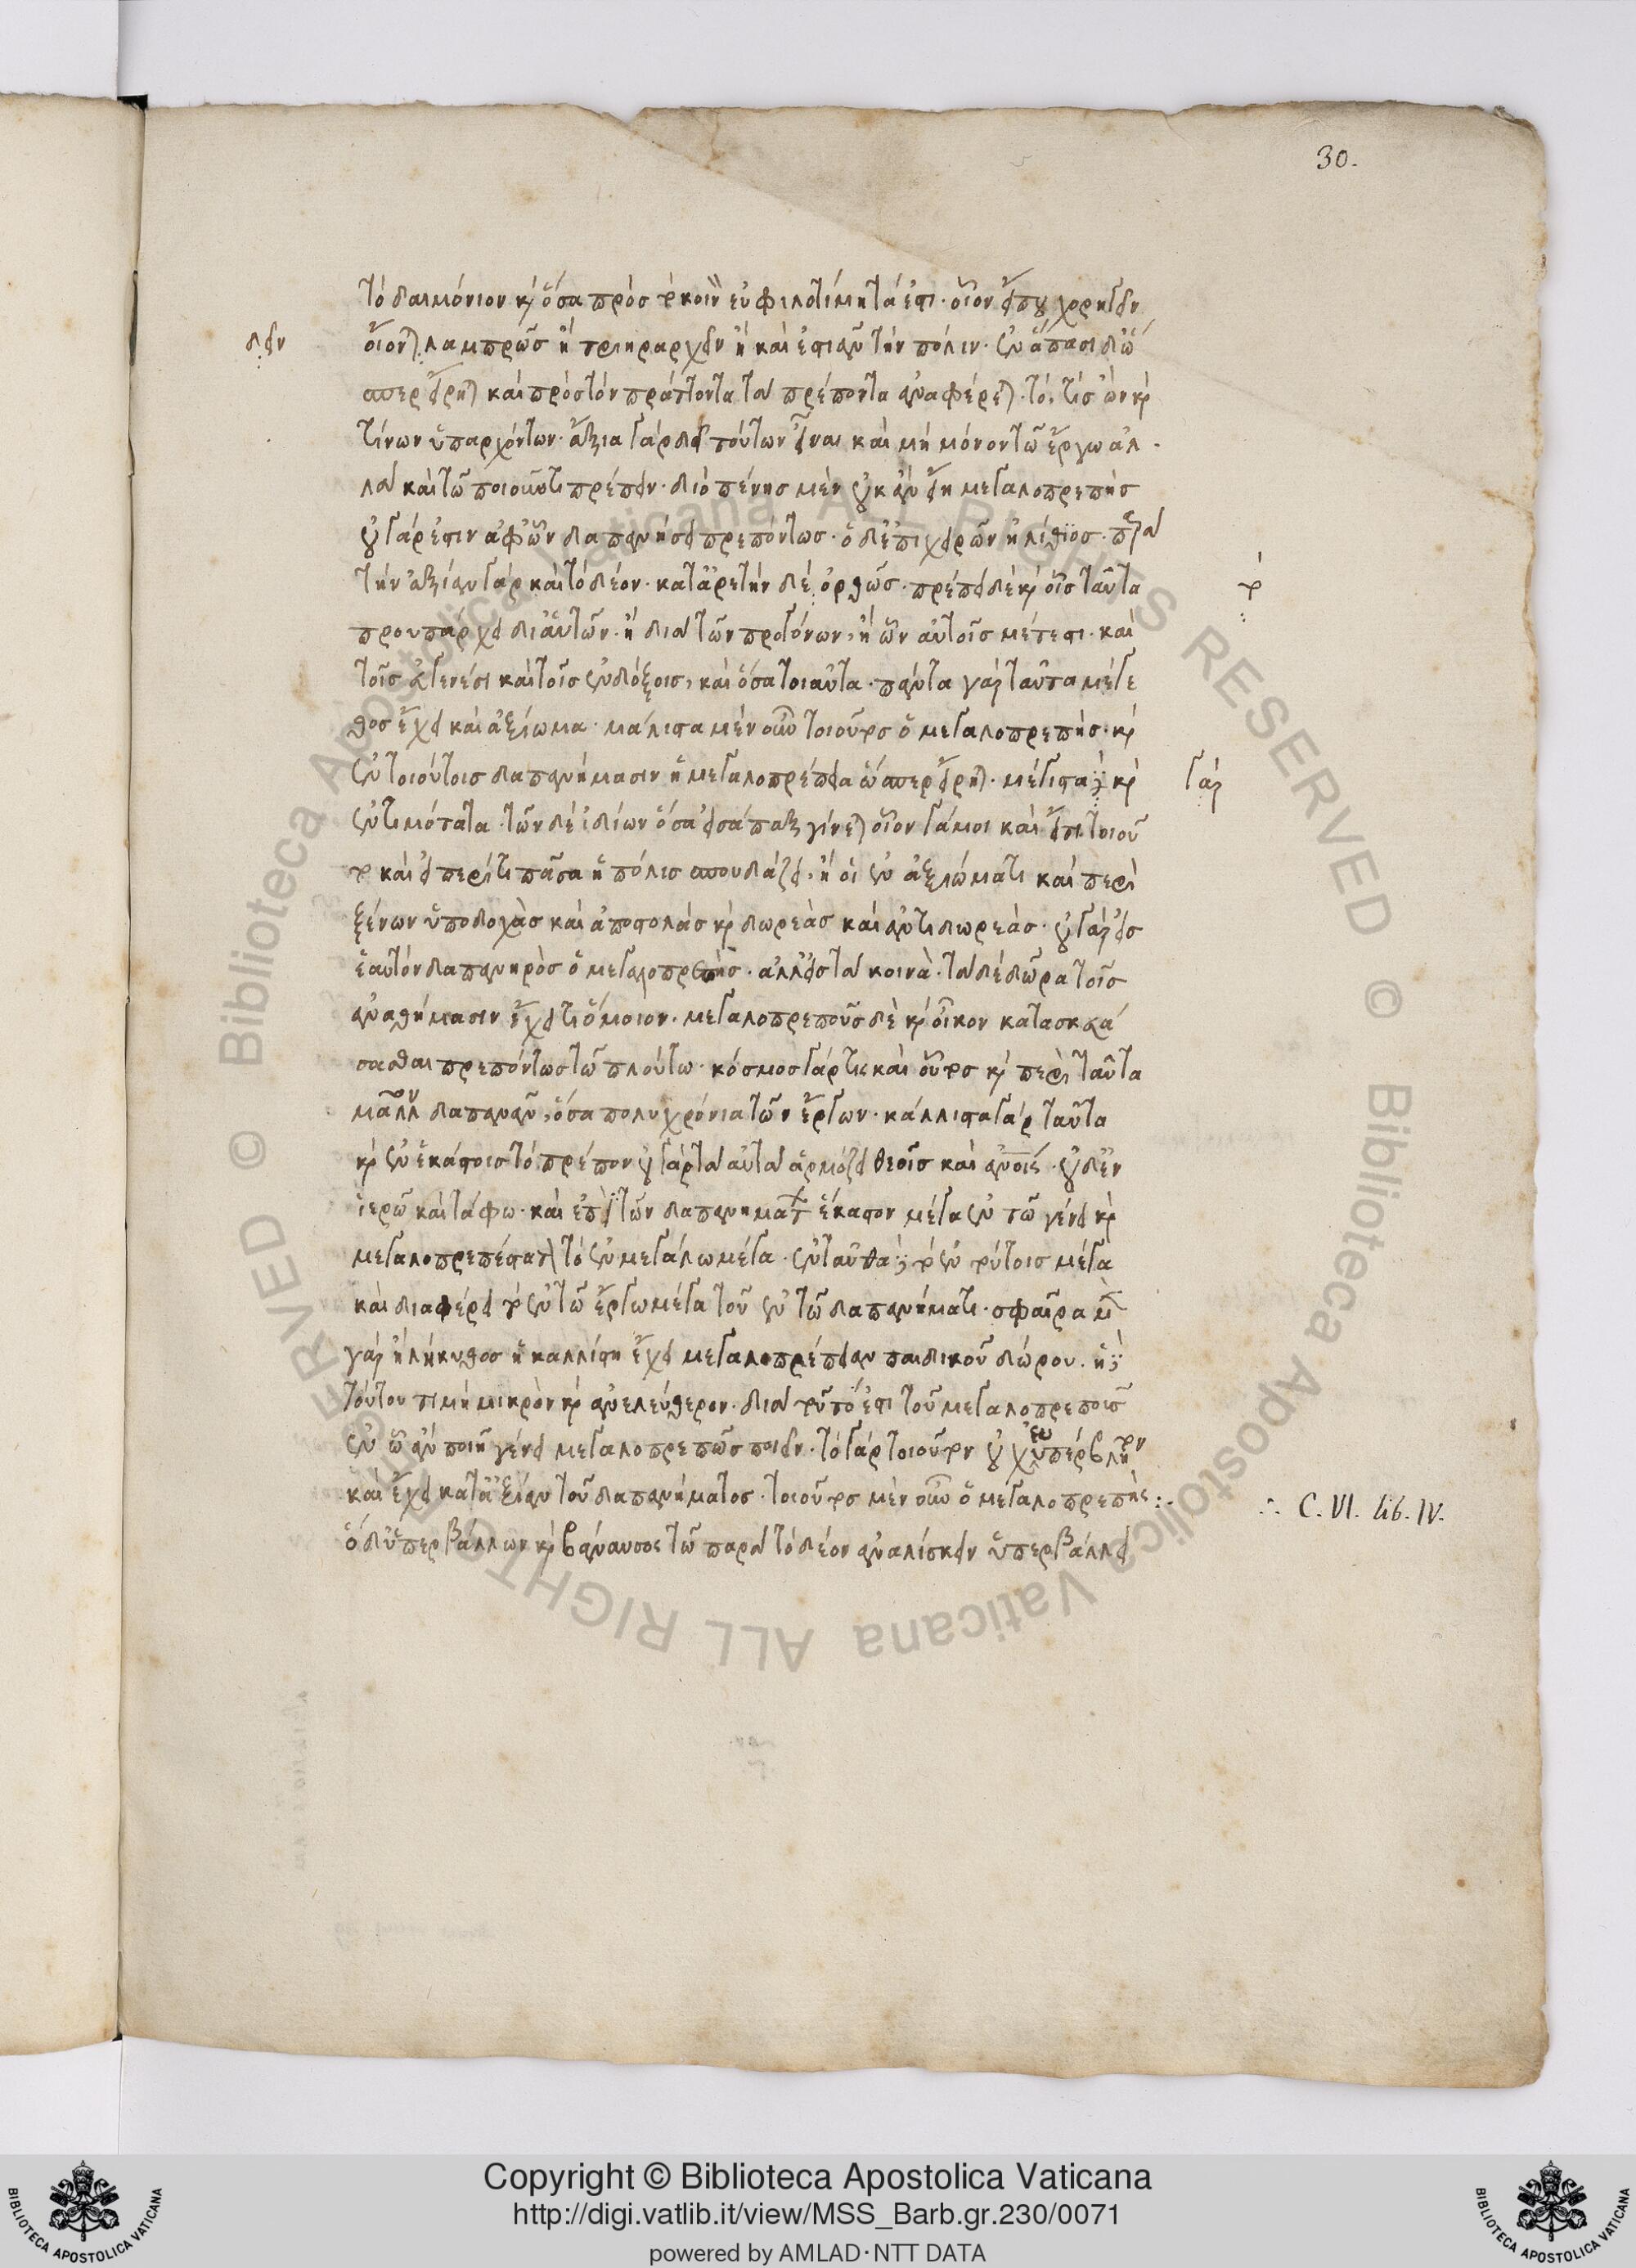 30.
τὸ δαιμόνιον καὶ ὅσα πρὸς τὸ κοινὸν εὐφιλοτίμητά ἐστι· οἷον εἴ που χορηγεῖν
δεῖν
οἴονται λαμπρῶς ἢ τριηραρχεῖν ἢ καὶ ἑστιᾶν τὴν πόλιν· ἐν ἅπασι δ' ὥσ
περ εἴρηται καὶ πρὸς τὸν πράττοντα τὰ πρέποντα ἀναφέρεται· τό, τίς ὢν καὶ
τίνων ὑπαρχόντων· ἄξια γὰρ δεῖ τούτων εἶναι καὶ μὴ μόνον τῶ ἔργω ἀλ
λὰ καὶ τῶ ποιοῦντι πρέπειν· διὸ πένης μὲν οὐκ ἂν εἴη μεγαλοπρεπὴς
οὐ γάρ ἐστιν ἀφ' ὧν δαπανήσει πρεπόντως· ὁ δ' ἐπιχειρῶν ἠλίθιος· παρὰ
τὴν ἀξίαν γὰρ καὶ τὸ δέον· κατ' ἀρετὴν δὲ ὀρθῶς· πρέπει δὲ καὶ οἷς ταῦτα
τὸ
προυπάρχει δι' αὑτῶν· ἢ διὰ τῶν προγόνων, ἢ ὧν αὐτοῖς μέτεστι· καὶ
τοῖς εὐγενέσι καὶ τοῖς ἐνδόξοις, καὶ ὅσα τοιαῦτα· πάντα γὰρ ταῦτα μέγε
θος ἔχει καὶ ἀξίωμα· μάλιστα μὲν οὖν τοιοῦτος ὁ μεγαλοπρεπής· καὶ
ἐν τοιούτοις δαπανήμασιν ἡ μεγαλοπρέπεια ὥσπερ εἴρηται· μέγιστα δὲ καὶ
γὰρ
ἐντιμότατα· τῶν δὲ ἰδίων ὅσα εἰσάπαξ γίνεται οἷον γάμοι καὶ εἴ τι τοιοῦ
το καὶ εἰ περί τι πᾶσα ἡ πόλις σπουδάζει, ἢ οἱ ἐν ἀξιώματι καὶ περὶ
ξένων ὑποδοχὰς καὶ ἀποστολὰς καὶ δωρεὰς καὶ ἀντιδωρεάς· οὐ γὰρ εἰς
ἑαυτὸν δαπανηρὸς ὁ μεγαλοπρεπὴς· ἀλλ' εἰς τὰ κοινὰ· τὰ δὲ δῶρα τοῖς
ἀναθήμασιν ἔχει τι ὅμοιον· μεγαλοπρεποῦς δὲ καὶ οἶκον κατασκευά
σασθαι πρεπόντως τῶ πλούτω· κόσμος γάρ τις καὶ οὗτος καὶ περὶ ταῦτα
μᾶλλον δαπανᾶν, ὅσα πολυχρόνια τῶν ἔργων· κάλλιστα γὰρ ταῦτα
καὶ ἐν ἑκάστοις τὸ πρέπον οὐ γὰρ τὰ αὐτὰ ἁρμόζει θεοῖς καὶ ἀνθρώποις· οὐδ' ἐν
ἱερῶ καὶ τάφω· καὶ ἐπεὶ τῶν δαπανημάτων ἕκαστον μέγα ἐν τῶ γένει καὶ
μεγαλοπρεπέστατον τὸ ἐν μεγάλω μέγα· ἐνταῦθα δὲ τὸ ἐν τούτοις μέγα
καὶ διαφέρει τὸ ἐν τῶ ἔργω μέγα τοῦ ἐν τῶ δαπανήματι· σφαῖρα μὲν
γὰρ ἢ λήκυθος ἡ καλλίστη ἔχει μεγαλοπρέπειαν παιδικοῦ δώρου· ἡ δὲ
τούτου τιμὴ μικρὸν καὶ ἀνελεύθερον· διὰ τοῦτό ἐστι τοῦ μεγαλοπρεποῦς
ἐν ὧ ἂν ποιῆ γένει μεγαλοπρεπῶς ποιεῖν· τὸ γὰρ τοιοῦτον οὐχ εὐυπέρβλητον
καὶ ἔχει κατ' ἀξίαν τοῦ δαπανήματος· τοιοῦτος μὲν οὖν ὁ μεγαλοπρεπής:·
∴ C. VI. lib. IV.
ὁ δ' ὑπερβάλλων καὶ βάναυσος τῶ παρὰ τὸ δέον ἀναλίσκειν ὑπερβάλλει
Copyright © Biblioteca Apostolica Vaticana
http://digi.vatlib.it/view/MSS_Barb.gr.230/0071
powered by AMLAD·NTT DATA
BIBLIOTECA APOSTOLICA VATICANA
BIBLIOTECA APOSTOLICA VATICANA
© Biblioteca Apostolica Vaticana ALL RIGHTS RESERVED © Biblioteca Apostolica Vaticana ALL RIGHTS RESERVED